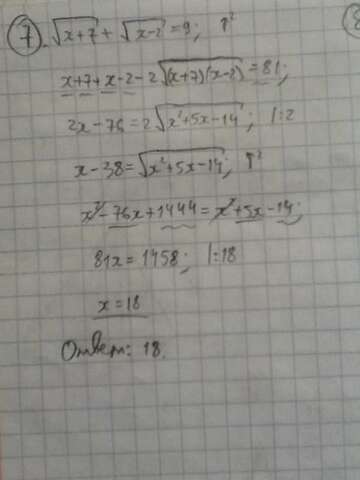 7. √(x+7) + √(x-2) = 9; ↑²
x+7+x-2-2√((x+7)(x-2)) = 81;
2x-76 = 2√(x²+5x-14); |:2
x-38 = √(x²+5x-14); ↑²
x²-76x+1444 = x²+5x-14;
81x = 1458; |:18
x = 18
Ответ: 18.